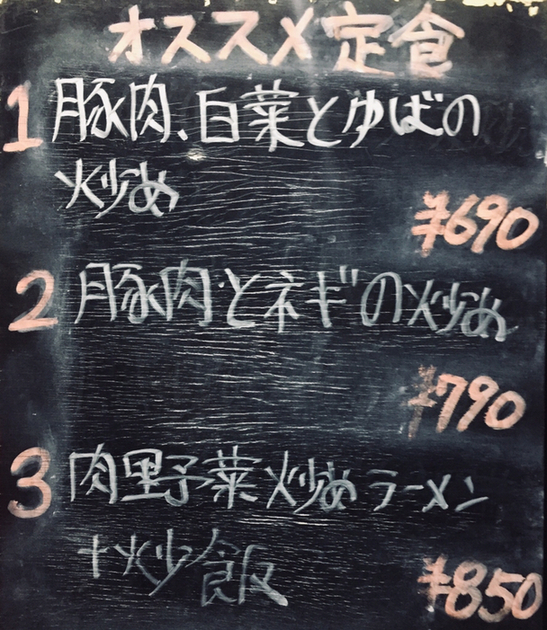 オススメ定食
1 豚肉、白菜とゆばの
炒め
¥690
2 豚肉とネギの炒め
¥790
3 肉野菜炒めラーメン
+炒飯
¥850